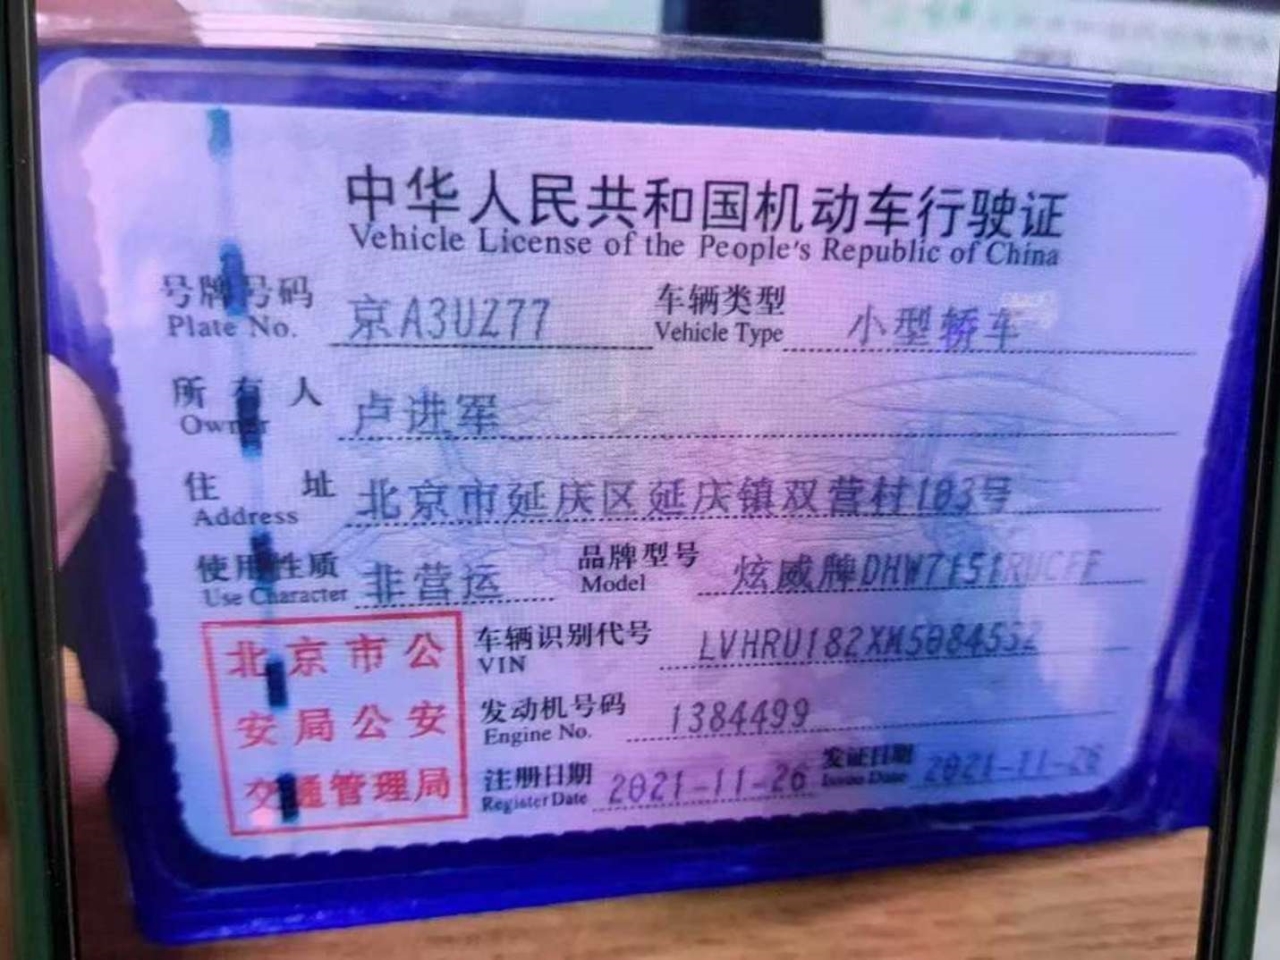 中华人民共和国机动车行驶证
Vehicle License of the People's Republic of China
号牌号码 京A3UZ77 车辆类型 小型轿车
Plate No. Vehicle Type
所有人 卢进军
Owner
住址 北京市延庆区延庆镇双营村103号
Address
使用性质 非营运 品牌型号 炫威牌DHW7151RUCFF
Use Character Model
北京市公
安局公安
交通管理局
车辆识别代号 LVHRU182XM5084532
VIN
发动机号码 1384499
Engine No.
注册日期 2021-11-26 发证日期 2021-11-26
Register Date Issue Date